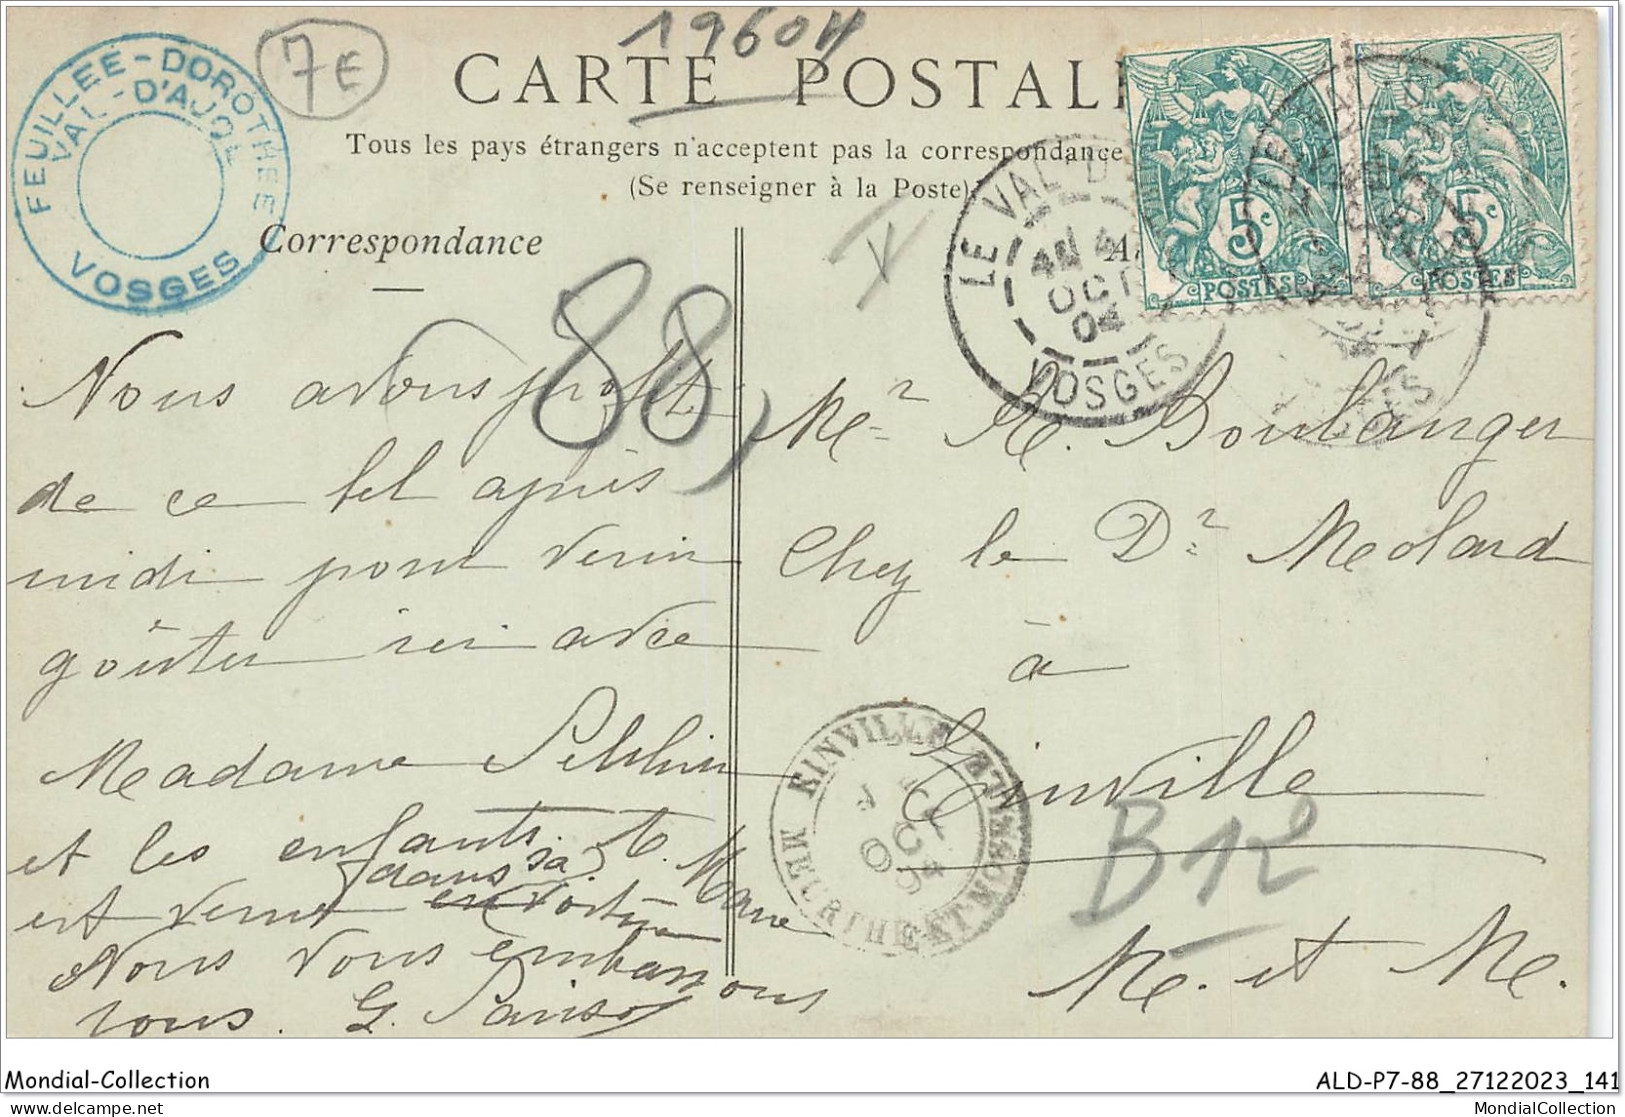 FEUILLÉE-DOROTHÉE
VAL-D'AJOL
VOSGES
7E
19604
CARTE POSTALE
Tous les pays étrangers n'acceptent pas la correspondance
(Se renseigner à la Poste)
Correspondance
X
A
LE VAL D'
4 OCT 04
VOSGES
5c
POSTES
5c
POSTES
88
Nous avons profité
de ce bel après
midi pour venir
goûter ici avec
Madame
et les enfants. M. Marie
est venue dans sa voiture
Nous vous embrassons
tous. G.
Mr R. Boulanger
Chez le Dr Medard
à
Einville
M. et M.
EINVILLE
OCT 04
MEURTHE-ET-MOSELLE
B12
Mondial-Collection
ALD-P7-88_27122023_141
MondialCollection
MondialCollection